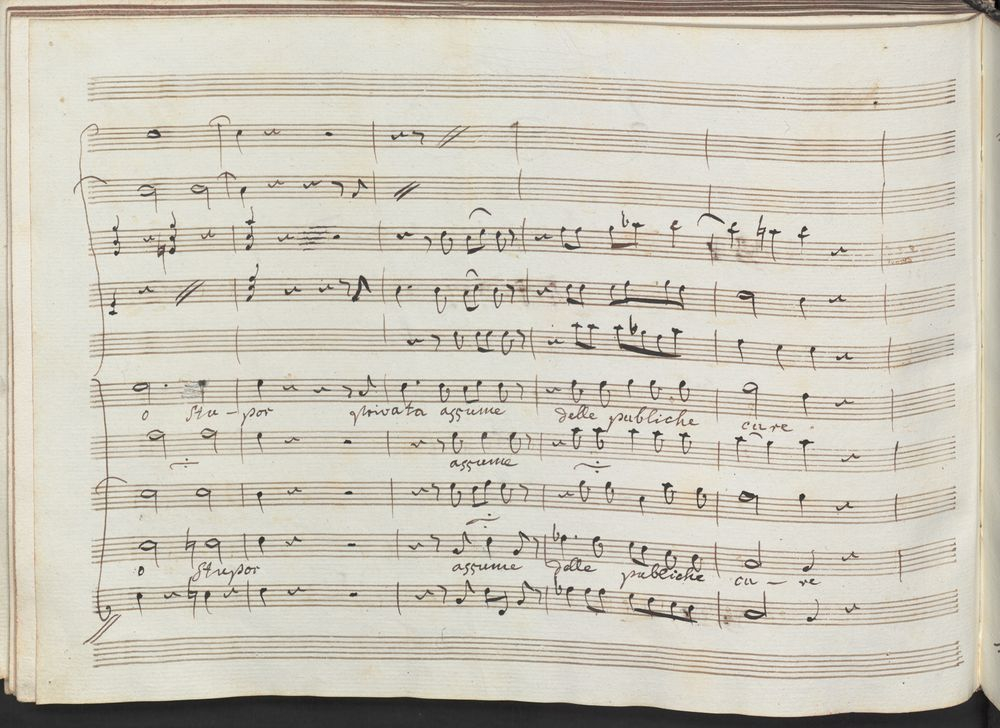 o Stu - por privata assume delle publiche cure
assume
o Strepor assume delle publiche cu - re